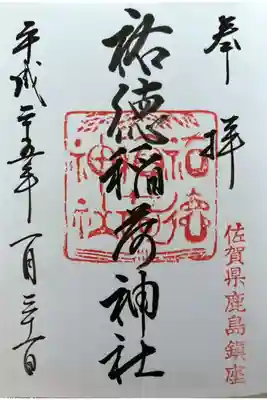 奉拝
佐賀県鹿島鎮座
祐徳稲荷神社
祐徳稲荷神社
平成二十五年一月三十一日